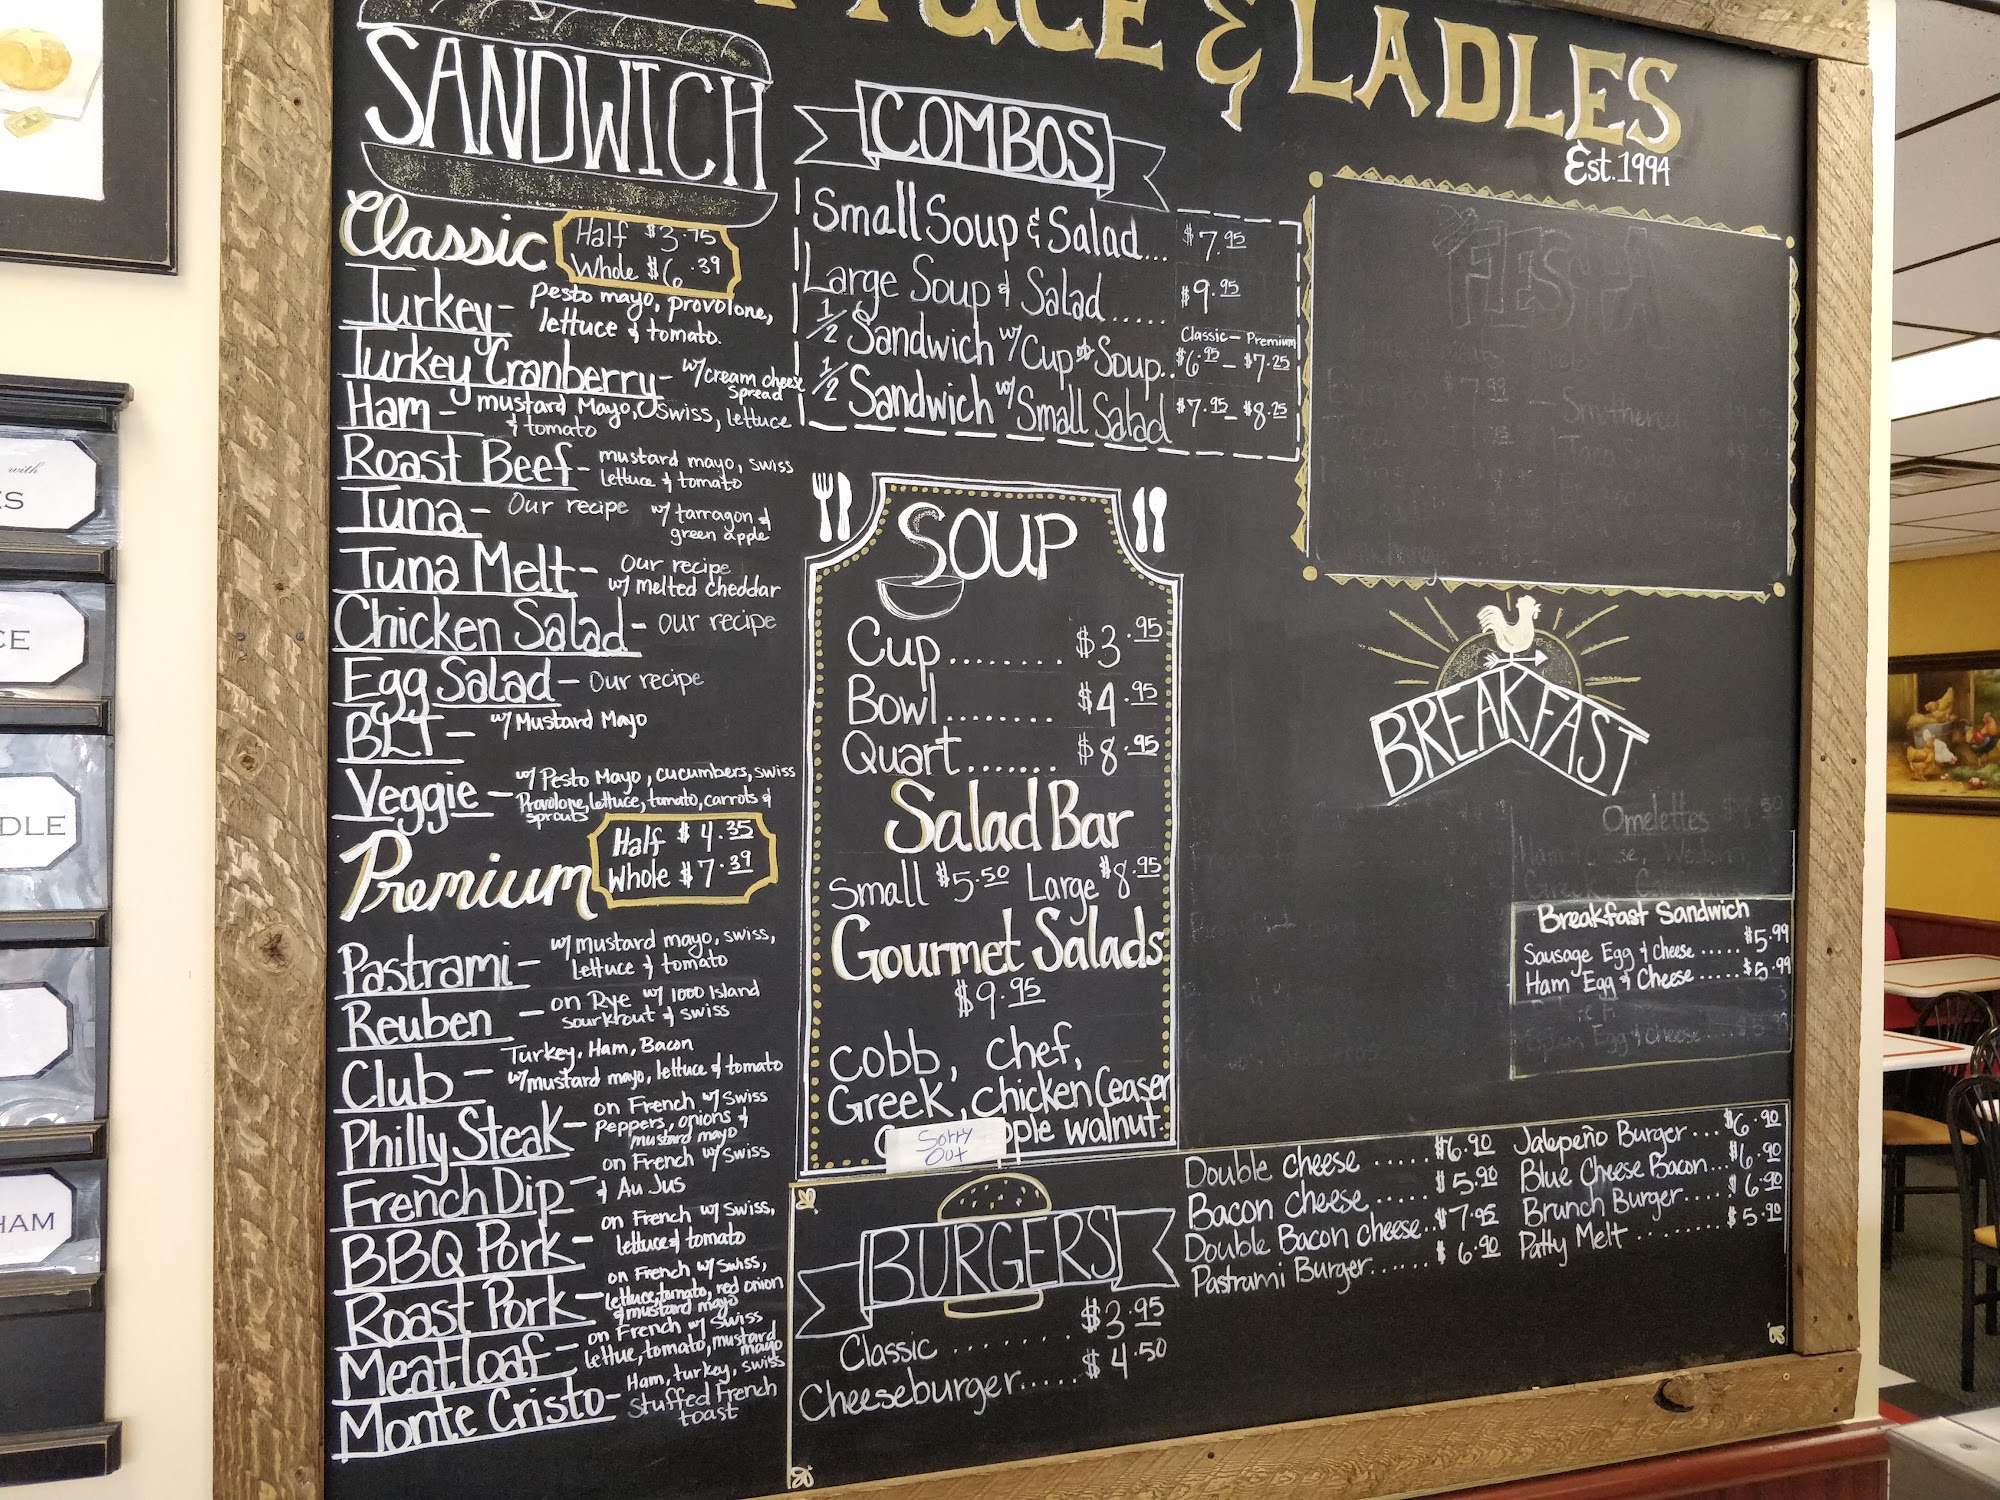 & LADLES
Est. 1994
SANDWICH
Classic
Half $3.75
Whole $6.39
Turkey - pesto mayo, provolone,
lettuce & tomato.
Turkey Cranberry - w/cream cheese
spread
Ham - mustard Mayo, Swiss, lettuce
& tomato
Roast Beef - mustard mayo, swiss
lettuce & tomato
Tuna - Our recipe w/ tarragon &
green apple
Tuna Melt - Our recipe
w/ melted cheddar
Chicken Salad - our recipe
Egg Salad - Our recipe
BLT - w/ Mustard Mayo
Veggie - w/ Pesto Mayo, cucumbers, swiss
Provolone, lettuce, tomato, carrots &
sprouts
Premium
Half $4.35
Whole $7.39
Pastrami - w/ mustard mayo, swiss,
lettuce & tomato
Reuben - on Rye w/ 1000 Island
sourkrout & swiss
Club - Turkey, Ham, Bacon
w/mustard mayo, lettuce & tomato
Philly Steak - on French w/ Swiss
peppers, onions &
mustard mayo
French Dip - on French w/ Swiss
& Au Jus
BBQ Pork - on French w/ Swiss,
lettuce & tomato
Roast Pork - on French w/ Swiss,
lettuce, tomato, red onion
& mustard mayo
Meatloaf - on French w/ Swiss
lettue, tomato, mustard
mayo
Monte Cristo - Ham, turkey, swiss
stuffed French
toast
COMBOS
Small Soup & Salad... $7.95
Large Soup & Salad..... $9.95
Classic - Premium
1/2 Sandwich w/ Cup Soup.. $6.95 - $7.25
1/2 Sandwich w/ Small Salad $7.95 - $8.25
SOUP
Cup........ $3.95
Bowl........ $4.95
Quart....... $8.95
Salad Bar
Small $5.50 Large $8.95
Gourmet Salads
$9.95
cobb, chef,
Greek, chicken Ceaser
pple walnut.
Sorry
Out
BURGERS
Classic ....... $3.95
Cheeseburger..... $4.50
Double Cheese ..... $6.90
Bacon Cheese..... $5.90
Double Bacon cheese.. $7.95
Pastrami Burger...... $6.90
Jalepeño Burger... $6.90
Blue Cheese Bacon... $6.90
Brunch Burger..... $6.90
Patty Melt ....... $5.90
FIESTA
BREAKFAST
Omelettes
Breakfast Sandwich
Sausage Egg & Cheese ..... $5.99
Ham Egg & Cheese ..... $5.99
Egg & Cheese
with
CE
DLE
HAM